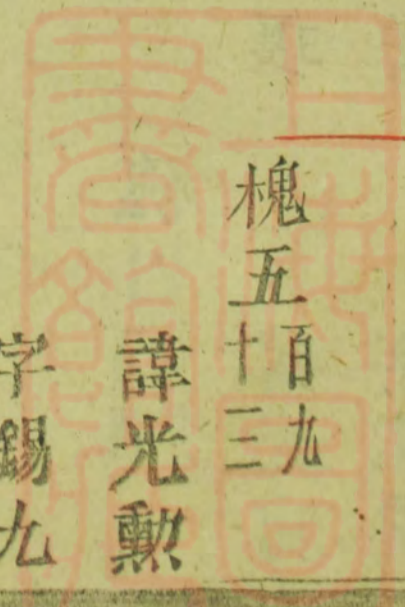 槐五百九十三
諱光勲
字錫九